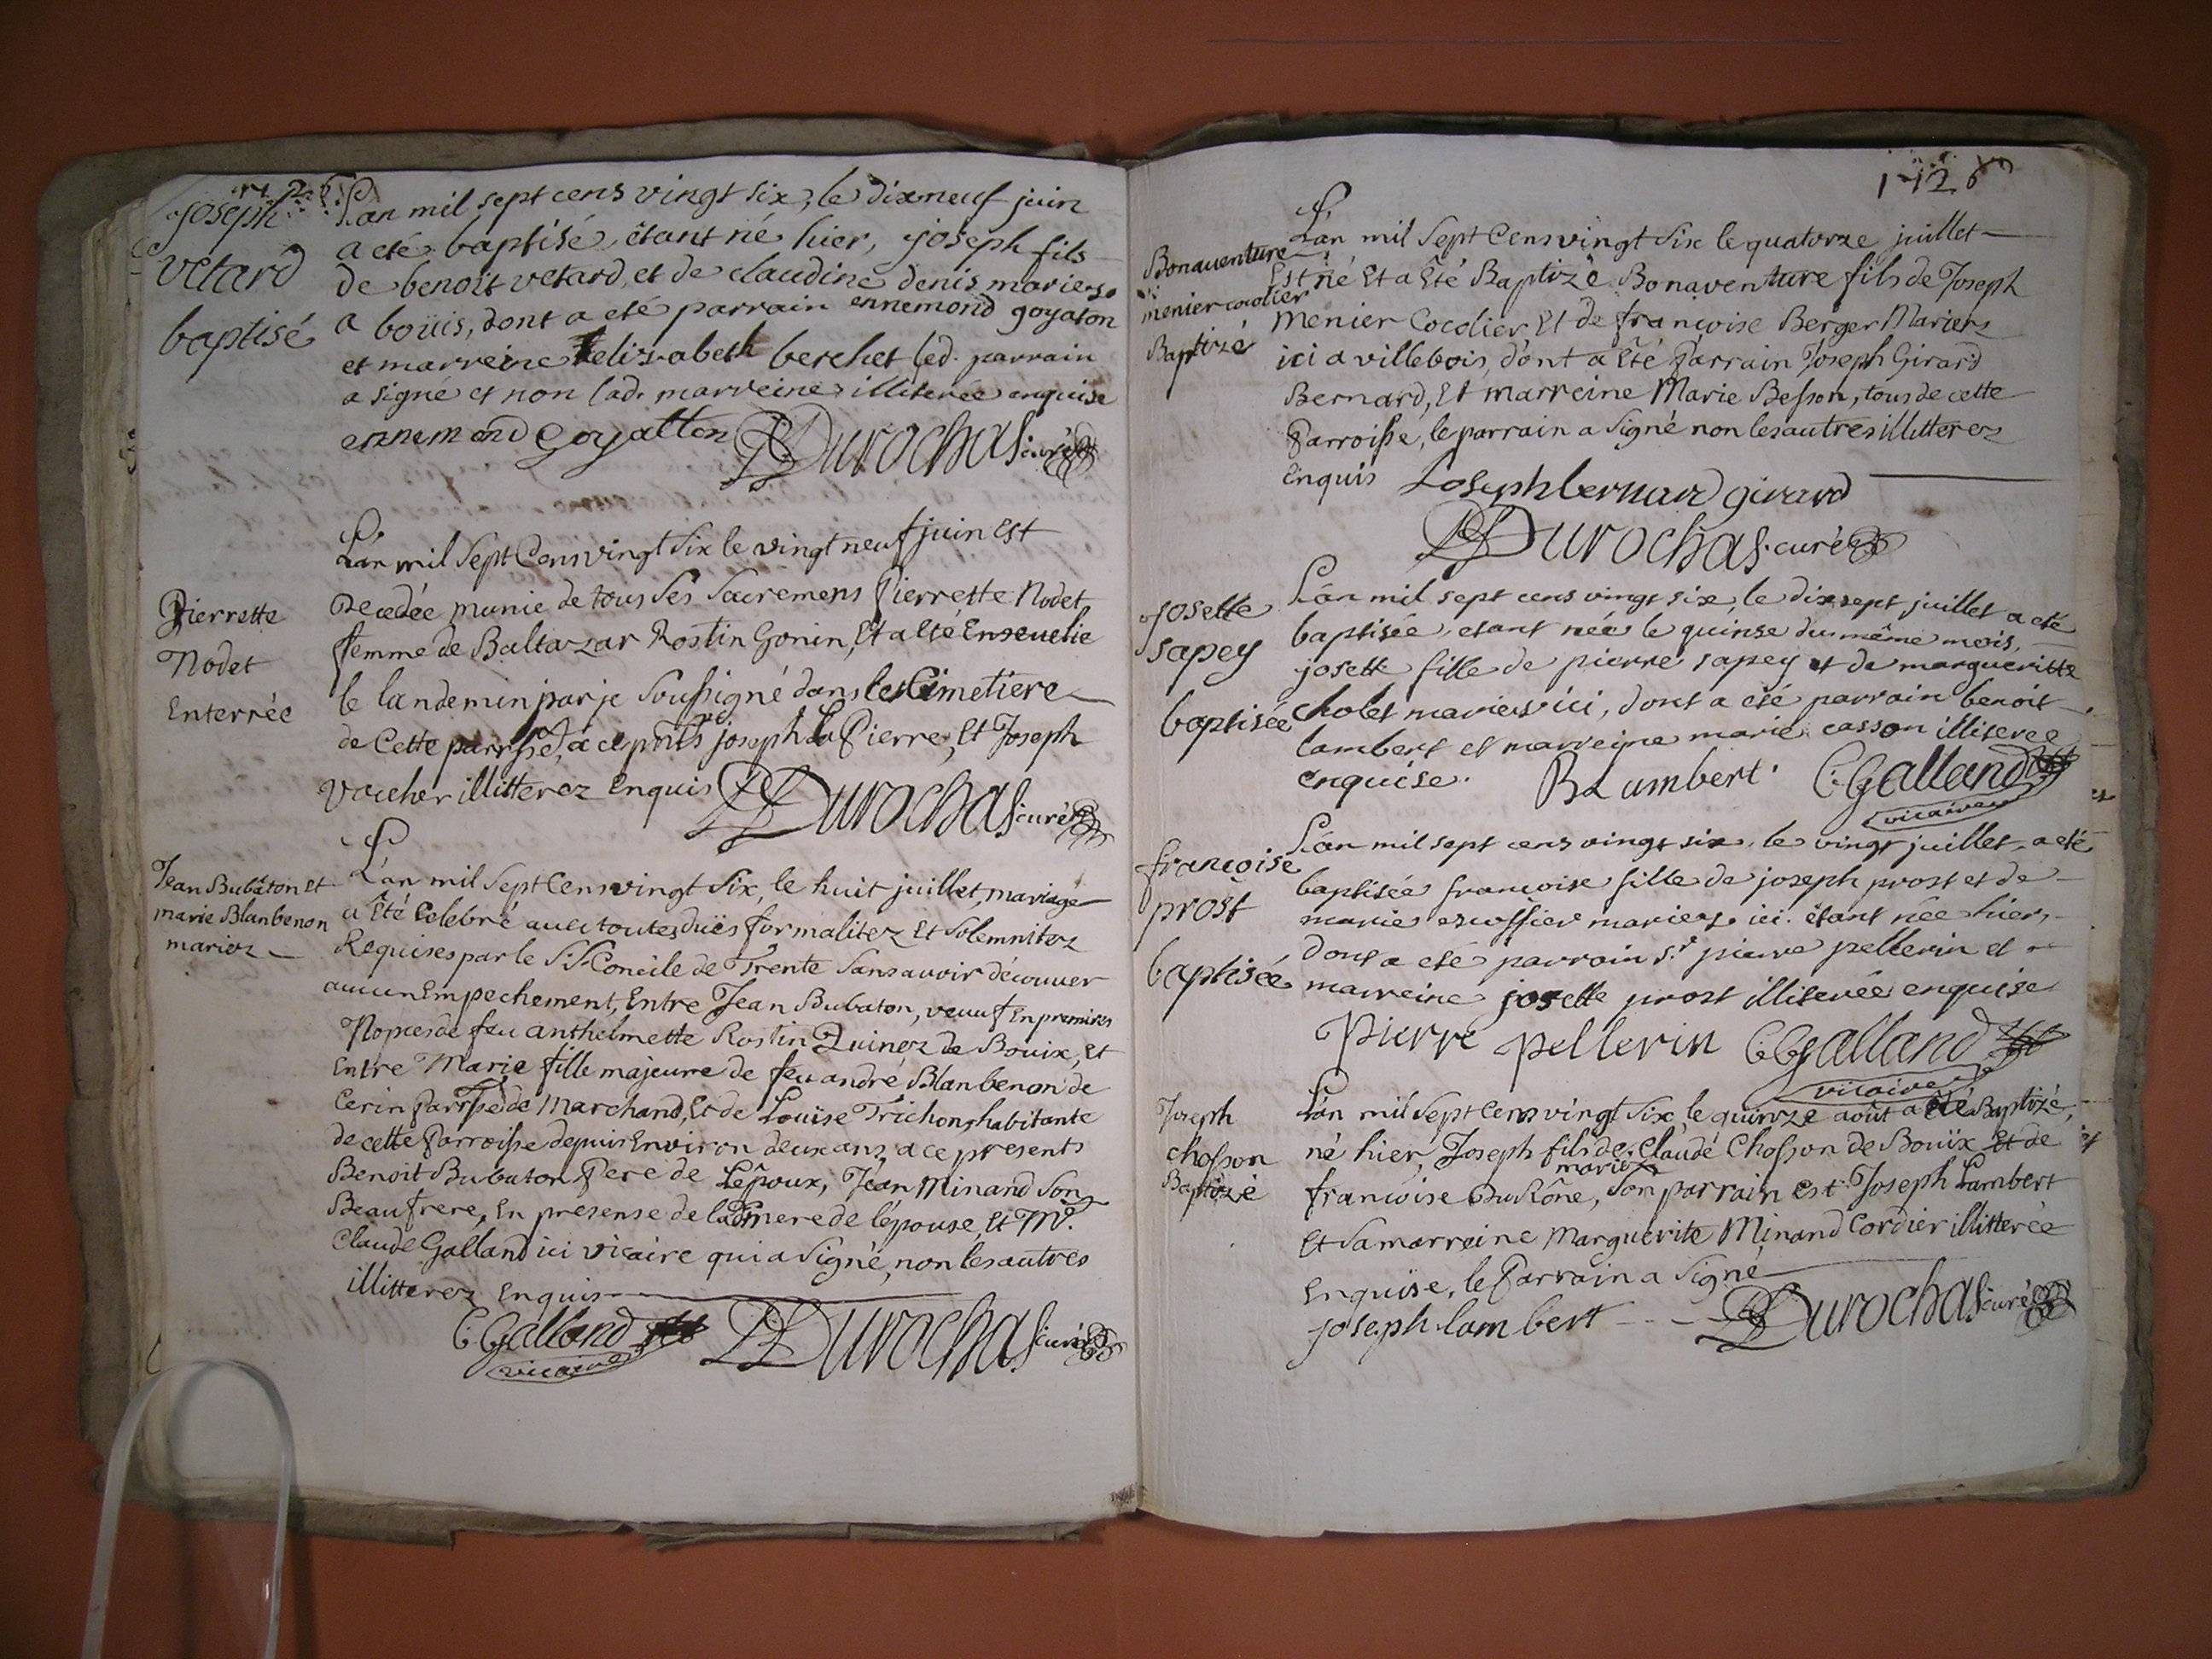 Joseph
vetard
baptisé
L'an mil sept cens vingt six, le dixneuf juin
a eté baptisé, étant né hier, joseph fils
de benoit vetard, et de claudine denis mariers
a boüis, dont a eté parrain ennemond goyaton
et marreine elizabeth berchet led. parrain
a signé et non lad. marreine illiterée enquise
ennemond Goyatton Durochas curé
Pierrette
Nodet
Enterrée
L'an mil Sept Cens vingt Six le vingt neuf juin Est
Decedée munie de tous Ses Sacremens Pierrette Nodet
femme de Baltazar Rostin Gonin, Et a Eté Ensevelie
le landemin par je Soussigné dans le Cimetiere
de Cette parrsse, a ce pnts joseph La Pierre, Et Joseph
Vacher illitterez Enquis Durochas curé
Jean Bubaton Et
marie Blanbenon
mariez
L'an mil Sept Cens vingt Six, le huit juillet, mariage
a Eté Celebré avec toutes duës formalitez Et Solemnitez
Requises par le S. S. Concile de Trente Sans avoir découver
aucun Empechement, Entre Jean Bubaton, veuuf En premires
Nopces de feu anthelmette Rostin Quinez de Bouix, Et
Entre Marie fille majeure de feu andré Blanbenon de
Cerin parrsse de Marchand, Et de Louïse Trichon, habitante
de cette Parroisse depuis Environ deux ans, a ce presents
Benoit Bubaton Pere de Lépoux, Jean Minand Son
Beaufrere, En presense de lad. mere de lépouse, Et Mre.
Claude Galland ici vicaire qui a Signé, non les autres
illitterez Enquis
C. Galland vicaire Durochas curé
1726
Bonaventure
menier cocolier
Baptizé
L'an mil Sept Cens vingt Six le quatorze juillet
Est né Et a Eté Baptizé Bonaventure fils de Joseph
Menier Cocolier Et de françoise Berger Mariers
ici a villebois, dont a Eté Parrain Joseph Girard
Bernard, Et marreine Marie Besson, tous de cette
Parroisse, le parrain a Signé non les autres illitterez
Enquis Joseph bernard girard
Durochas curé
josette
sapey
baptisée
L'an mil sept cens vingt six, le dixsept juillet a eté
baptisée, etant née le quinse du même mois,
josette fille de pierre sapey et de margueritte
cholet mariers ici, dont a eté parrain benoit
lambert et marreine marie casson illiteree
enquise. B Lambert C. Galland
vicaire
françoise
prost
baptisée
L'an mil sept cens vingt six, le vingt juillet, a eté
baptisée francoise fille de joseph prost et de
marie escoffier mariers ici. étant née hier,
dont a eté parrain sr. pierre pellerin et
marreine josette prost illiterée enquise
Pierre pellerin C. Galland
vicaire
Joseph
chosson
Baptizé
L'an mil Sept Cens vingt Six, le quinze août a Eté Baptizé,
né hier, Joseph fils de Claude Chosson de Bouïx Et de
mariez
françoise Du Rône, Son parrain est Joseph Lambert
Et Sa marreine Marguerite Minand Cordier illitterée
Enquise, le Parrain a Signé
joseph lambert Durochas curé